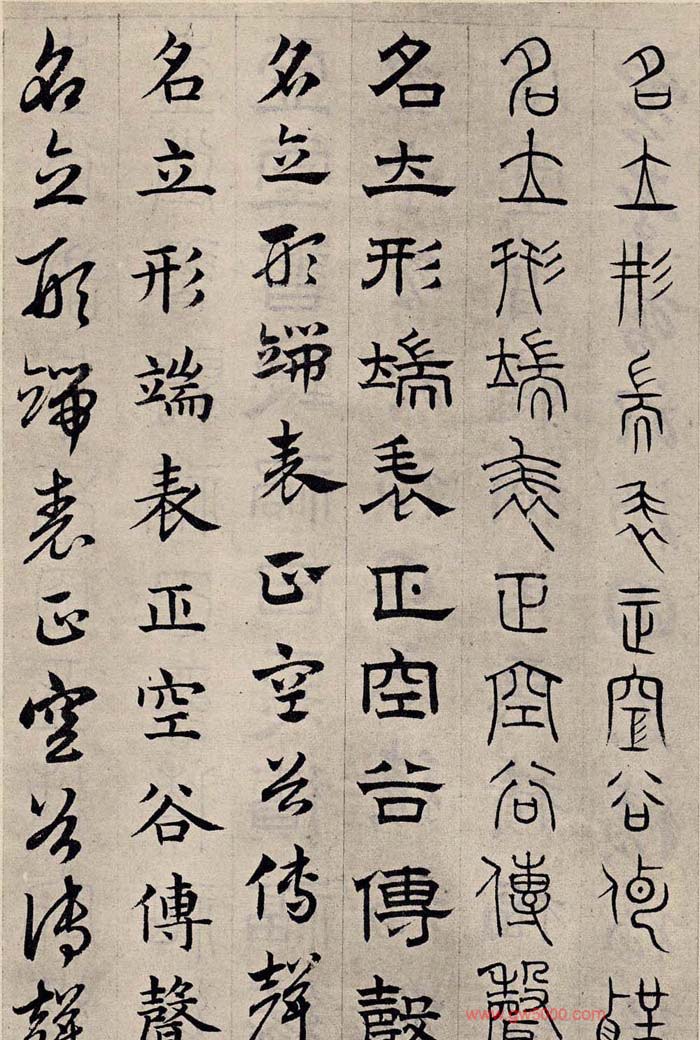 名立形端表正空谷傳聲
名立形端表正空谷傳聲
名立形端表正空谷傳聲
名立形端表正空谷傳聲
名立形端表正空谷傳聲
名立形端表正空谷傳聲
www.gw5000.com